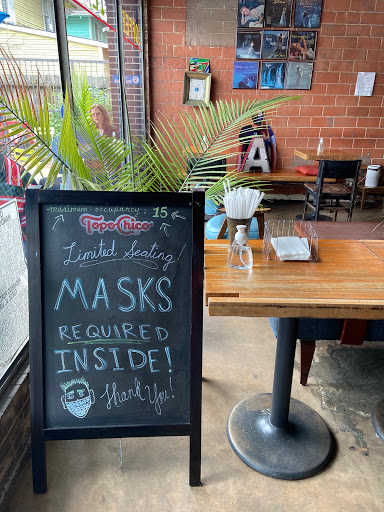 maximum occupancy : 15
Topo Chico
Limited Seating!
MASKS
REQUIRED
INSIDE!
Thank You!
A